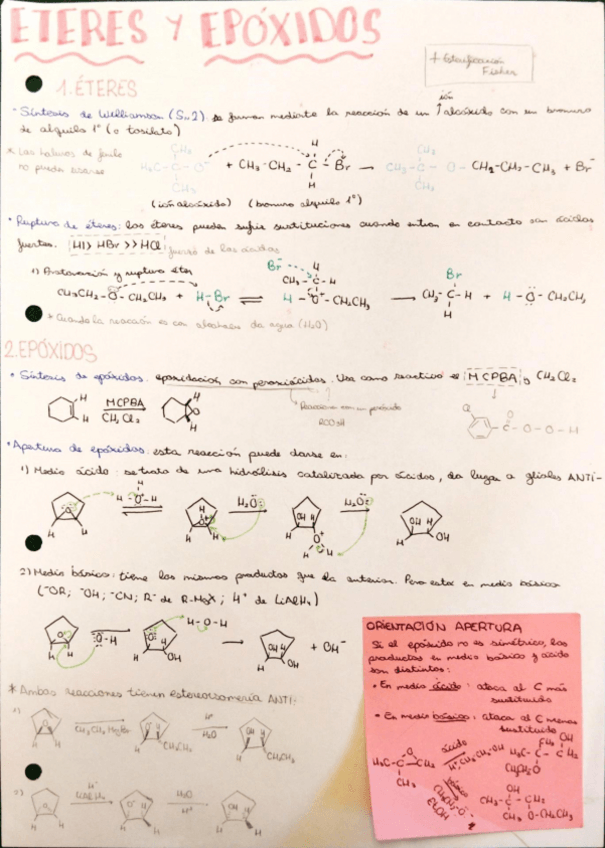 ETERES Y EPÓXIDOS
+ Esterificación
Fisher
1. ÉTERES
• Síntesis de Williamson (SN2) se forman mediante la reacción de un ión alcóxido con un bromuro
de alquilo 1º (o tosilato)
no puede usarse
CH3
H3C-C-O⁻ + CH3-CH2-C-Br → CH3-C-O-CH2-CH2-CH3 + Br⁻
CH3
(ión alcóxido) (bromuro alquilo 1º)
• Ruptura de éteres: los éteres pueden sufrir sustituciones cuando entran en contacto con ácidos
fuertes. HI > HBr >> HCl fuerza de los ácidos
1) Protonación y ruptura éter
CH3CH2-O-CH2CH3 + H-Br ⇌ H-O⁺-CH2CH3 → CH3-C-H + H-O-CH2CH3
* Cuando la reacción es con alcoholes da agua (H2O)
2. EPÓXIDOS
• Síntesis de epóxidos: epoxidación con peroxiácidos. Usa como reactivo el MCPBA y CH2Cl2
MCPBA
CH2Cl2
Reacciona con un peróxido
RCO3H
Cl
C-O-O-H
• Apertura de epóxidos: esta reacción puede darse en:
1) Medio ácido: se trata de una hidrólisis catalizada por ácidos, da lugar a glioles ANTI-
H2O H2O
OH
2) Medio básico: tiene los mismos productos que la anterior. Pero estar en medio básico
(⁻OR; ⁻OH; ⁻CN; R⁻ de R-MgX; H⁻ de LiAlH4)
H-O-H
+ OH⁻
* Ambas reacciones tienen estereoisomería ANTI-
1) CH3CH2MgBr H⁺ H2O
CH2CH3 CH2CH3
2) H⁻ LiAlH4 H2O H⁺
ORIENTACIÓN APERTURA
Si el epóxido no es simétrico, los
productos en medio básico y ácido
son distintos:
• En medio ácido: ataca al C más
sustituido
• En medio básico: ataca al C menos
sustituido
ácido
H⁺ CH3CH2-OH
básico
CH3CH2-O⁻
EtOH
OH
CH3-C-CH2
CH3 O-CH2CH3